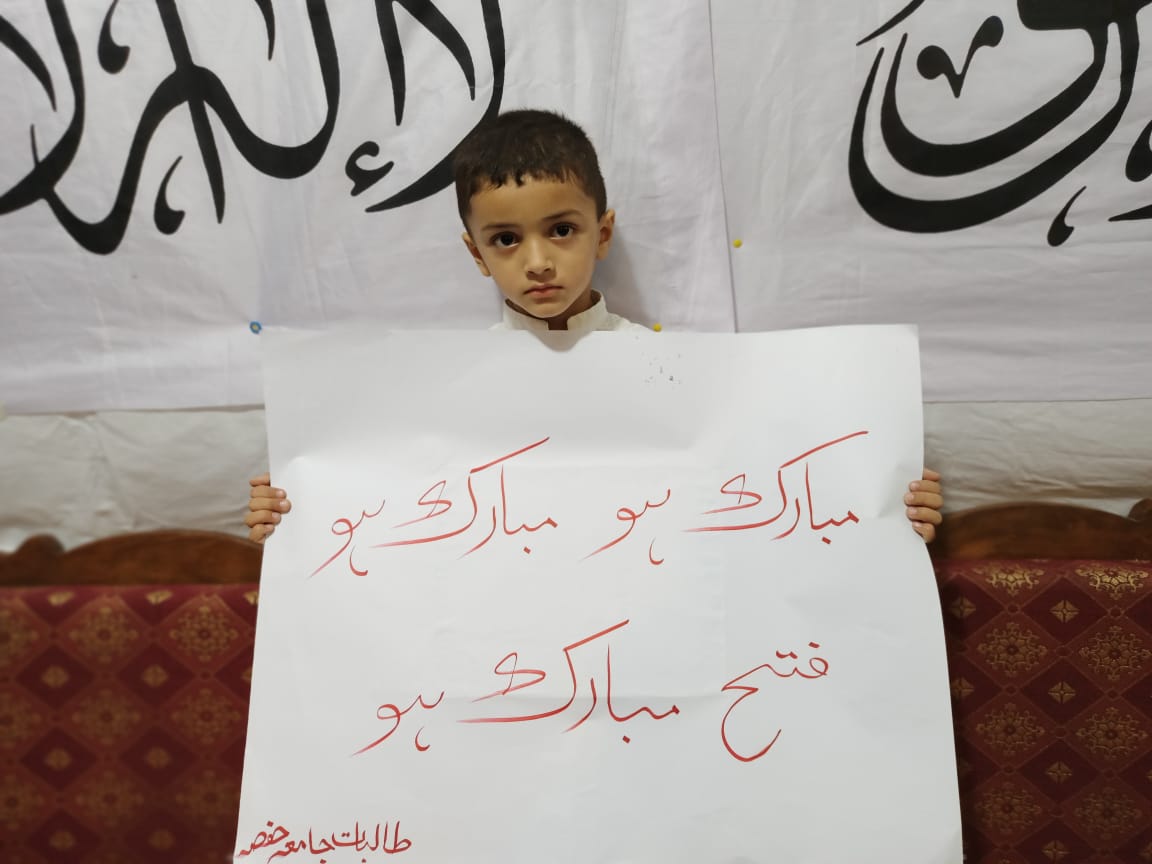 لا إله إلا
مبارک ہو مبارک ہو
فتح مبارک ہو
طالبات جامعہ حفصہ